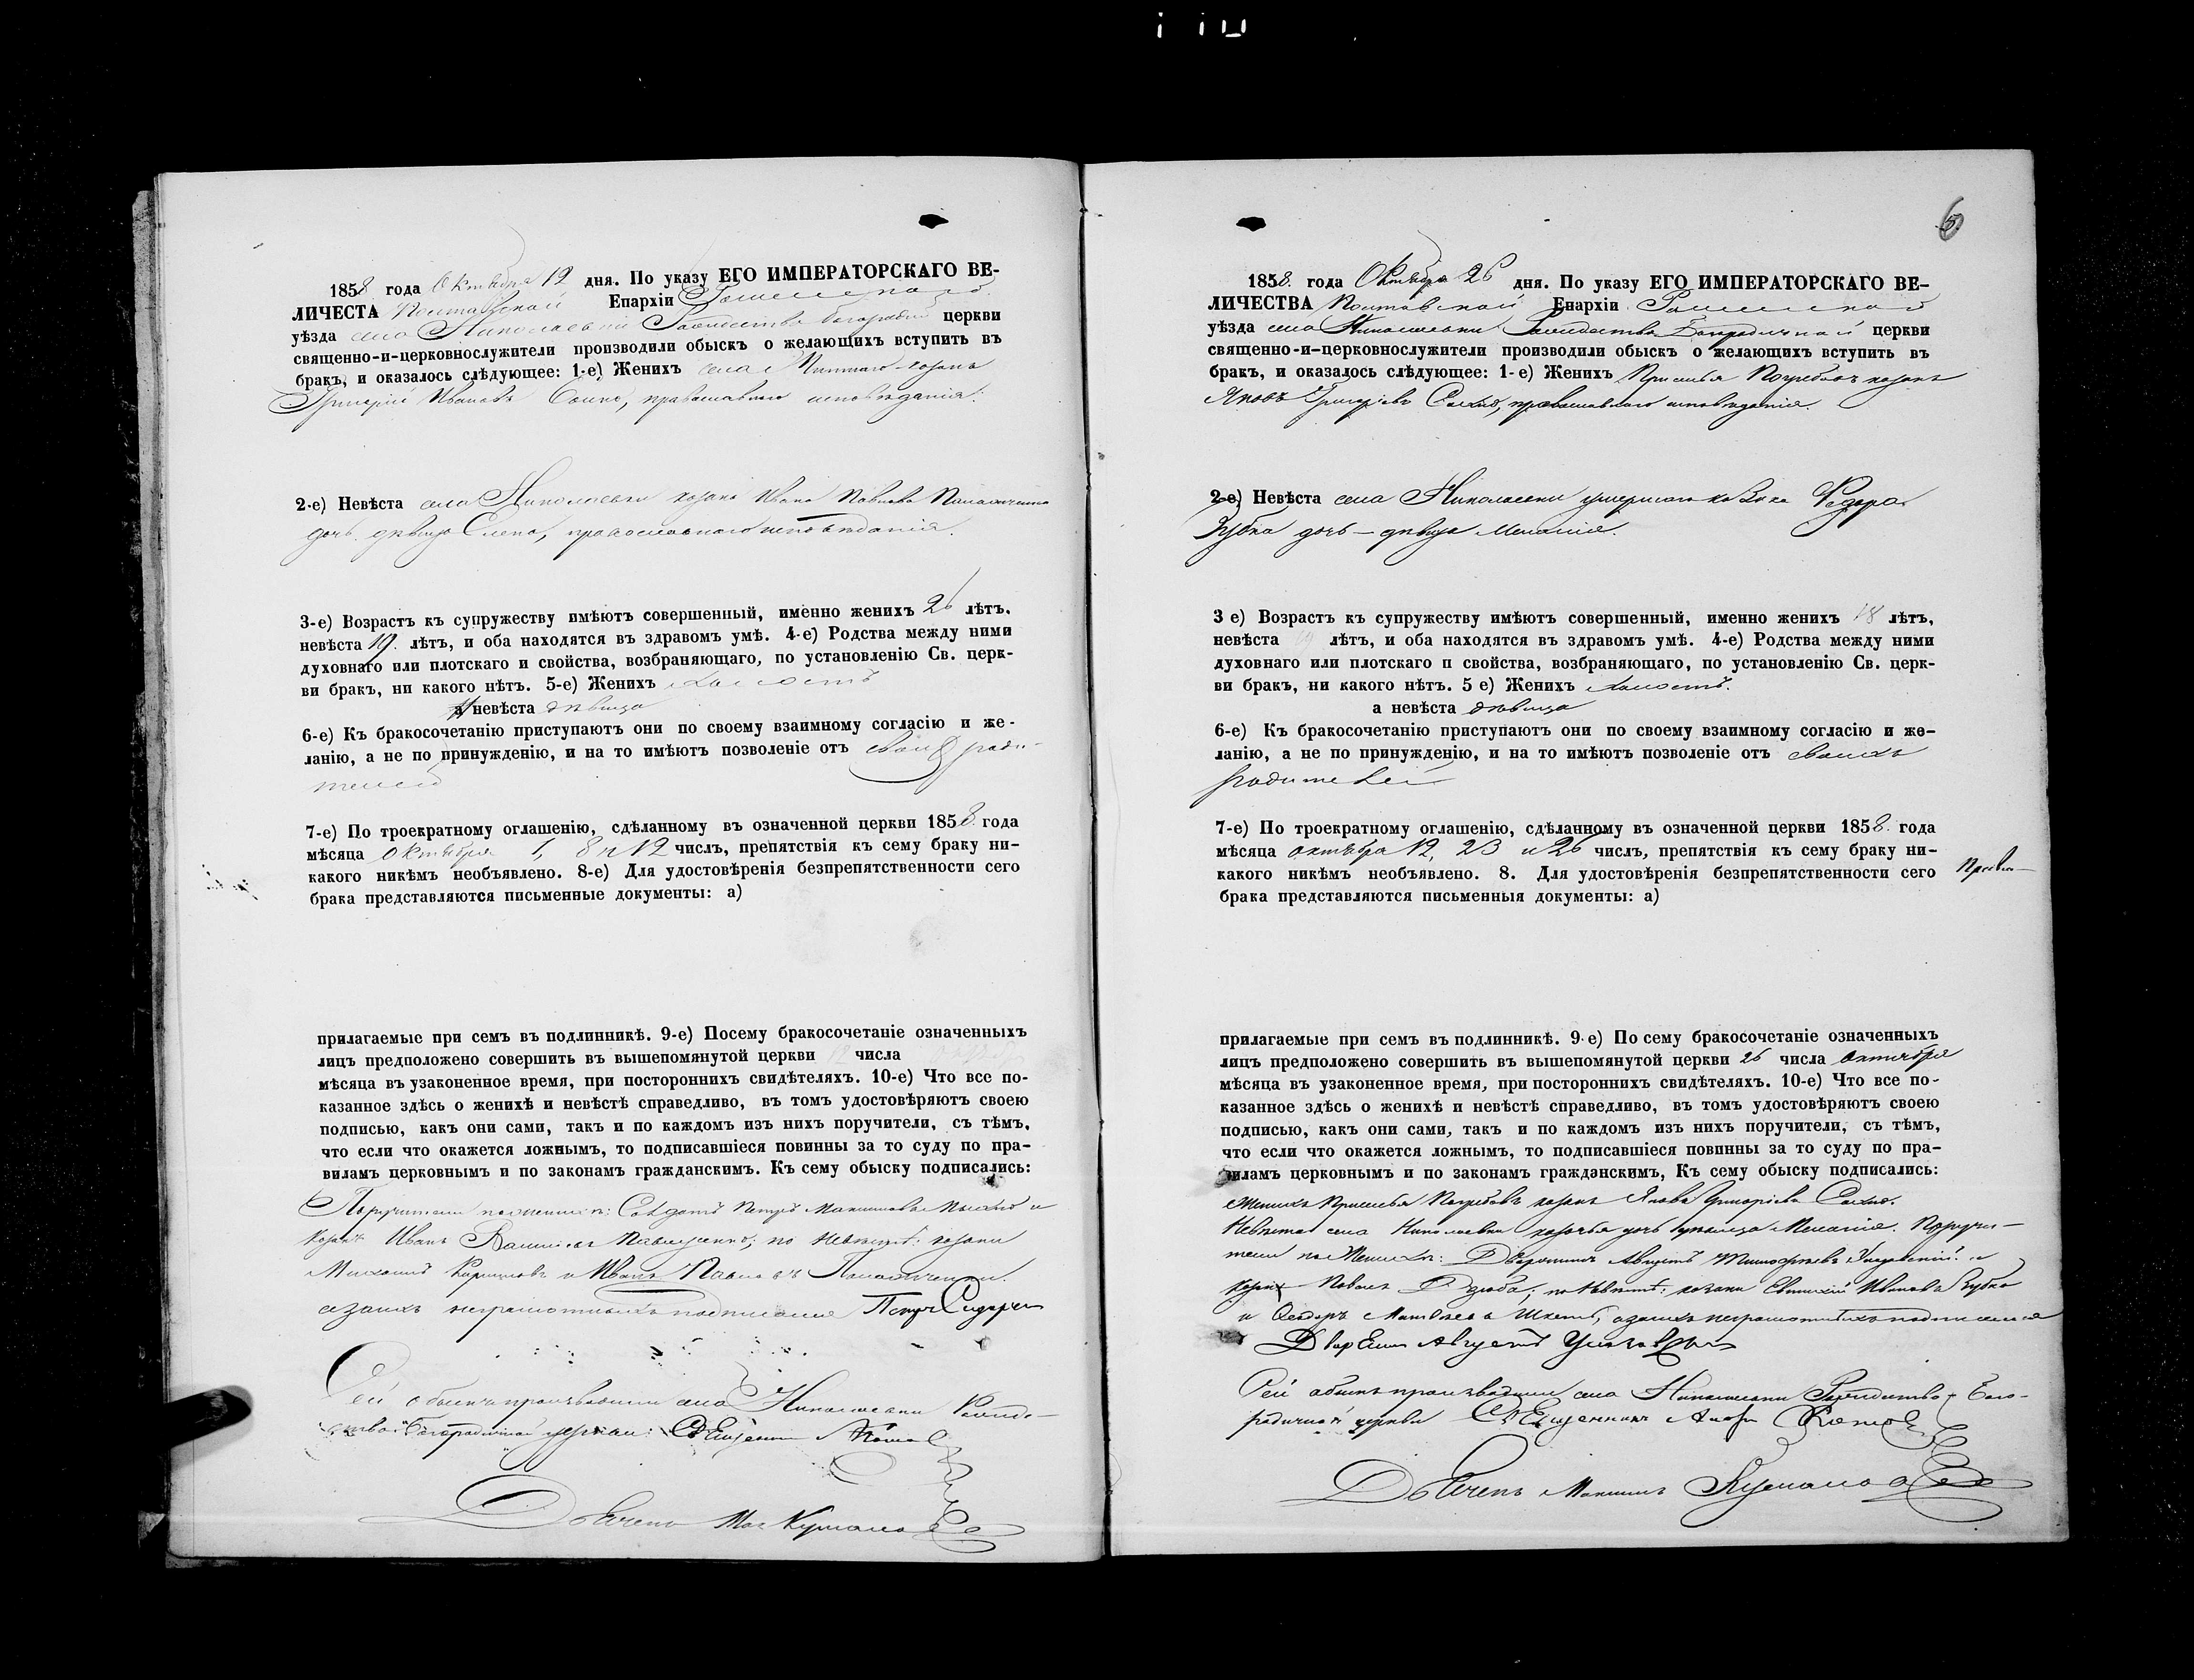 1858 года Октября 12 дня. По указу ЕГО ИМПЕРАТОРСКАГО ВЕ-
ЛИЧЕСТА Полтавской Епархіи
уѣзда села Николаевки Рождества Богородич церкви
священно-и-церковнослужители производили обыскъ о желающихъ вступить въ
бракъ, и оказалось слѣдующее: 1-е) Женихъ села козакъ
Григорій Ивановъ православнаго исповѣданія.
2-е) Невѣста села Николаевки козака Ивана Павлова
дочь дѣвица Елена, православнаго исповѣданія.
3-е) Возрастъ къ супружеству имѣютъ совершенный, именно женихъ 26 лѣтъ.
невѣста 19. лѣтъ, и оба находятся въ здравомъ умѣ. 4-е) Родства между ними
духовнаго или плотскаго и свойства, возбраняющаго, по установленію Св. церк-
ви бракъ, ни какого нѣтъ. 5-е) Женихъ холостъ
а невѣста дѣвица
6-е) Къ бракосочетанію приступаютъ они по своему взаимному согласію и же-
ланію, а не по принужденію, и на то имѣютъ позволеніе отъ своихъ роди-
телей
7-е) По троекратному оглашенію, сдѣланному въ означенной церкви 1858 года
мѣсяца октября 1, 8 и 12 числъ, препятствія къ сему браку ни-
какого никѣмъ необъявлено. 8-е) Для удостовѣренія безпрепятственности сего
брака представляются письменные документы: а)
прилагаемые при семъ въ подлинникѣ. 9-е) Посему бракосочетаніе означенныхъ
лицъ предположено совершить въ вышепомянутой церкви 12 числа
мѣсяца въ узаконенное время, при постороннихъ свидѣтеляхъ. 10-е) Что все по-
казанное здѣсь о женихѣ и невѣстѣ справедливо, въ томъ удостовѣряютъ своею
подписью, какъ они сами, такъ и по каждомъ изъ нихъ поручители, съ тѣмъ,
что если что окажется ложнымъ, то подписавшіеся повинны за то суду по пра-
виламъ церковнымъ и по законамъ гражданскимъ. Къ сему обыску подписались:
Поручители по женихѣ: Солдатъ Петръ Максимовъ и
козакъ Иванъ Павлученко; по невѣстѣ: козаки
Михаилъ Кириловъ и Иванъ Павловъ
а за нихъ неграмотныхъ подписался Петръ Сидорен
Сей обыскъ производили села Николаевки Рожде-
ство-Богородичной церкви: Священникъ А Котов
Дьячекъ Мак Кулико
6
1858. года Октября 26 дня. По указу ЕГО ИМПЕРАТОРСКАГО ВЕ-
ЛИЧЕСТВА Полтавской Епархіи Роменскаго
уѣзда села Николаевки Рождества Богородичной церкви
священно-и-церковнослужители производили обыскъ о желающихъ вступить въ
бракъ, и оказалось слѣдующее: 1-е) Женихъ козакъ
Яковъ Григоріевъ православнаго исповѣданія.
2-е) Невѣста села Николаевки умершаго козака Федора
Зубка дочь – дѣвица Меланія.
3 е) Возрастъ къ супружеству имѣютъ совершенный, именно женихъ 18 лѣтъ,
невѣста 19 лѣтъ, и оба находятся въ здравомъ умѣ. 4-е) Родства между ними
духовнаго или плотскаго п свойства, возбраняющаго, по установленію Св. церк-
ви бракъ, ни какого нѣтъ. 5 е) Женихъ холостъ.
а невѣста дѣвица
6-е) Къ бракосочетанію приступаютъ они по своему взаимному согласію и же-
ланію, а не по принужденію, и на то имѣютъ позволеніе отъ своихъ
родителей
7-е) По троекратному оглашенію, сдѣланному въ означенной церкви 1858. года
мѣсяца октября 12, 23 и 26 числъ, препятствія къ сему браку ни-
какого никѣмъ необъявлено. 8. Для удостовѣренія безпрепятственности сего
брака представляются письменныя документы: а)
прилагаемые при семъ въ подлинникѣ. 9-е) По сему бракосочетаніе означенныхъ
лицъ предположено совершить въ вышепомянутой церкви 26 числа октября
мѣсяца въ узаконенное время, при постороннихъ свидѣтеляхъ. 10-е) Что все по-
казанное здѣсь о женихѣ и невѣстѣ справедливо, въ томъ удостовѣряютъ своею
подписью, какъ они сами, такъ и по каждомъ изъ нихъ поручители, съ тѣмъ,
что если что окажется ложнымъ, то подписавшіеся повинны за то суду по пра-
виламъ церковнымъ и по законамъ гражданскимъ, Къ сему обыску подписались:
Женихъ козакъ Яковъ Григоріевъ
Невѣста села Николаевки козачья дочь Меланія. Поручи-
тели по женихѣ: Дворянинъ Августъ Тимофѣевъ и
козакъ Павелъ Дзюба; по невѣстѣ: козаки Евтихій Ивановъ Зубко
и Федоръ Матвѣевъ а за нихъ неграмотныхъ подписался
Дворенин Августъ
Сей обыскъ производили села Николаевки Рождество-Бого-
родичной церкви Священникъ Котов
Дьячекъ Максимъ